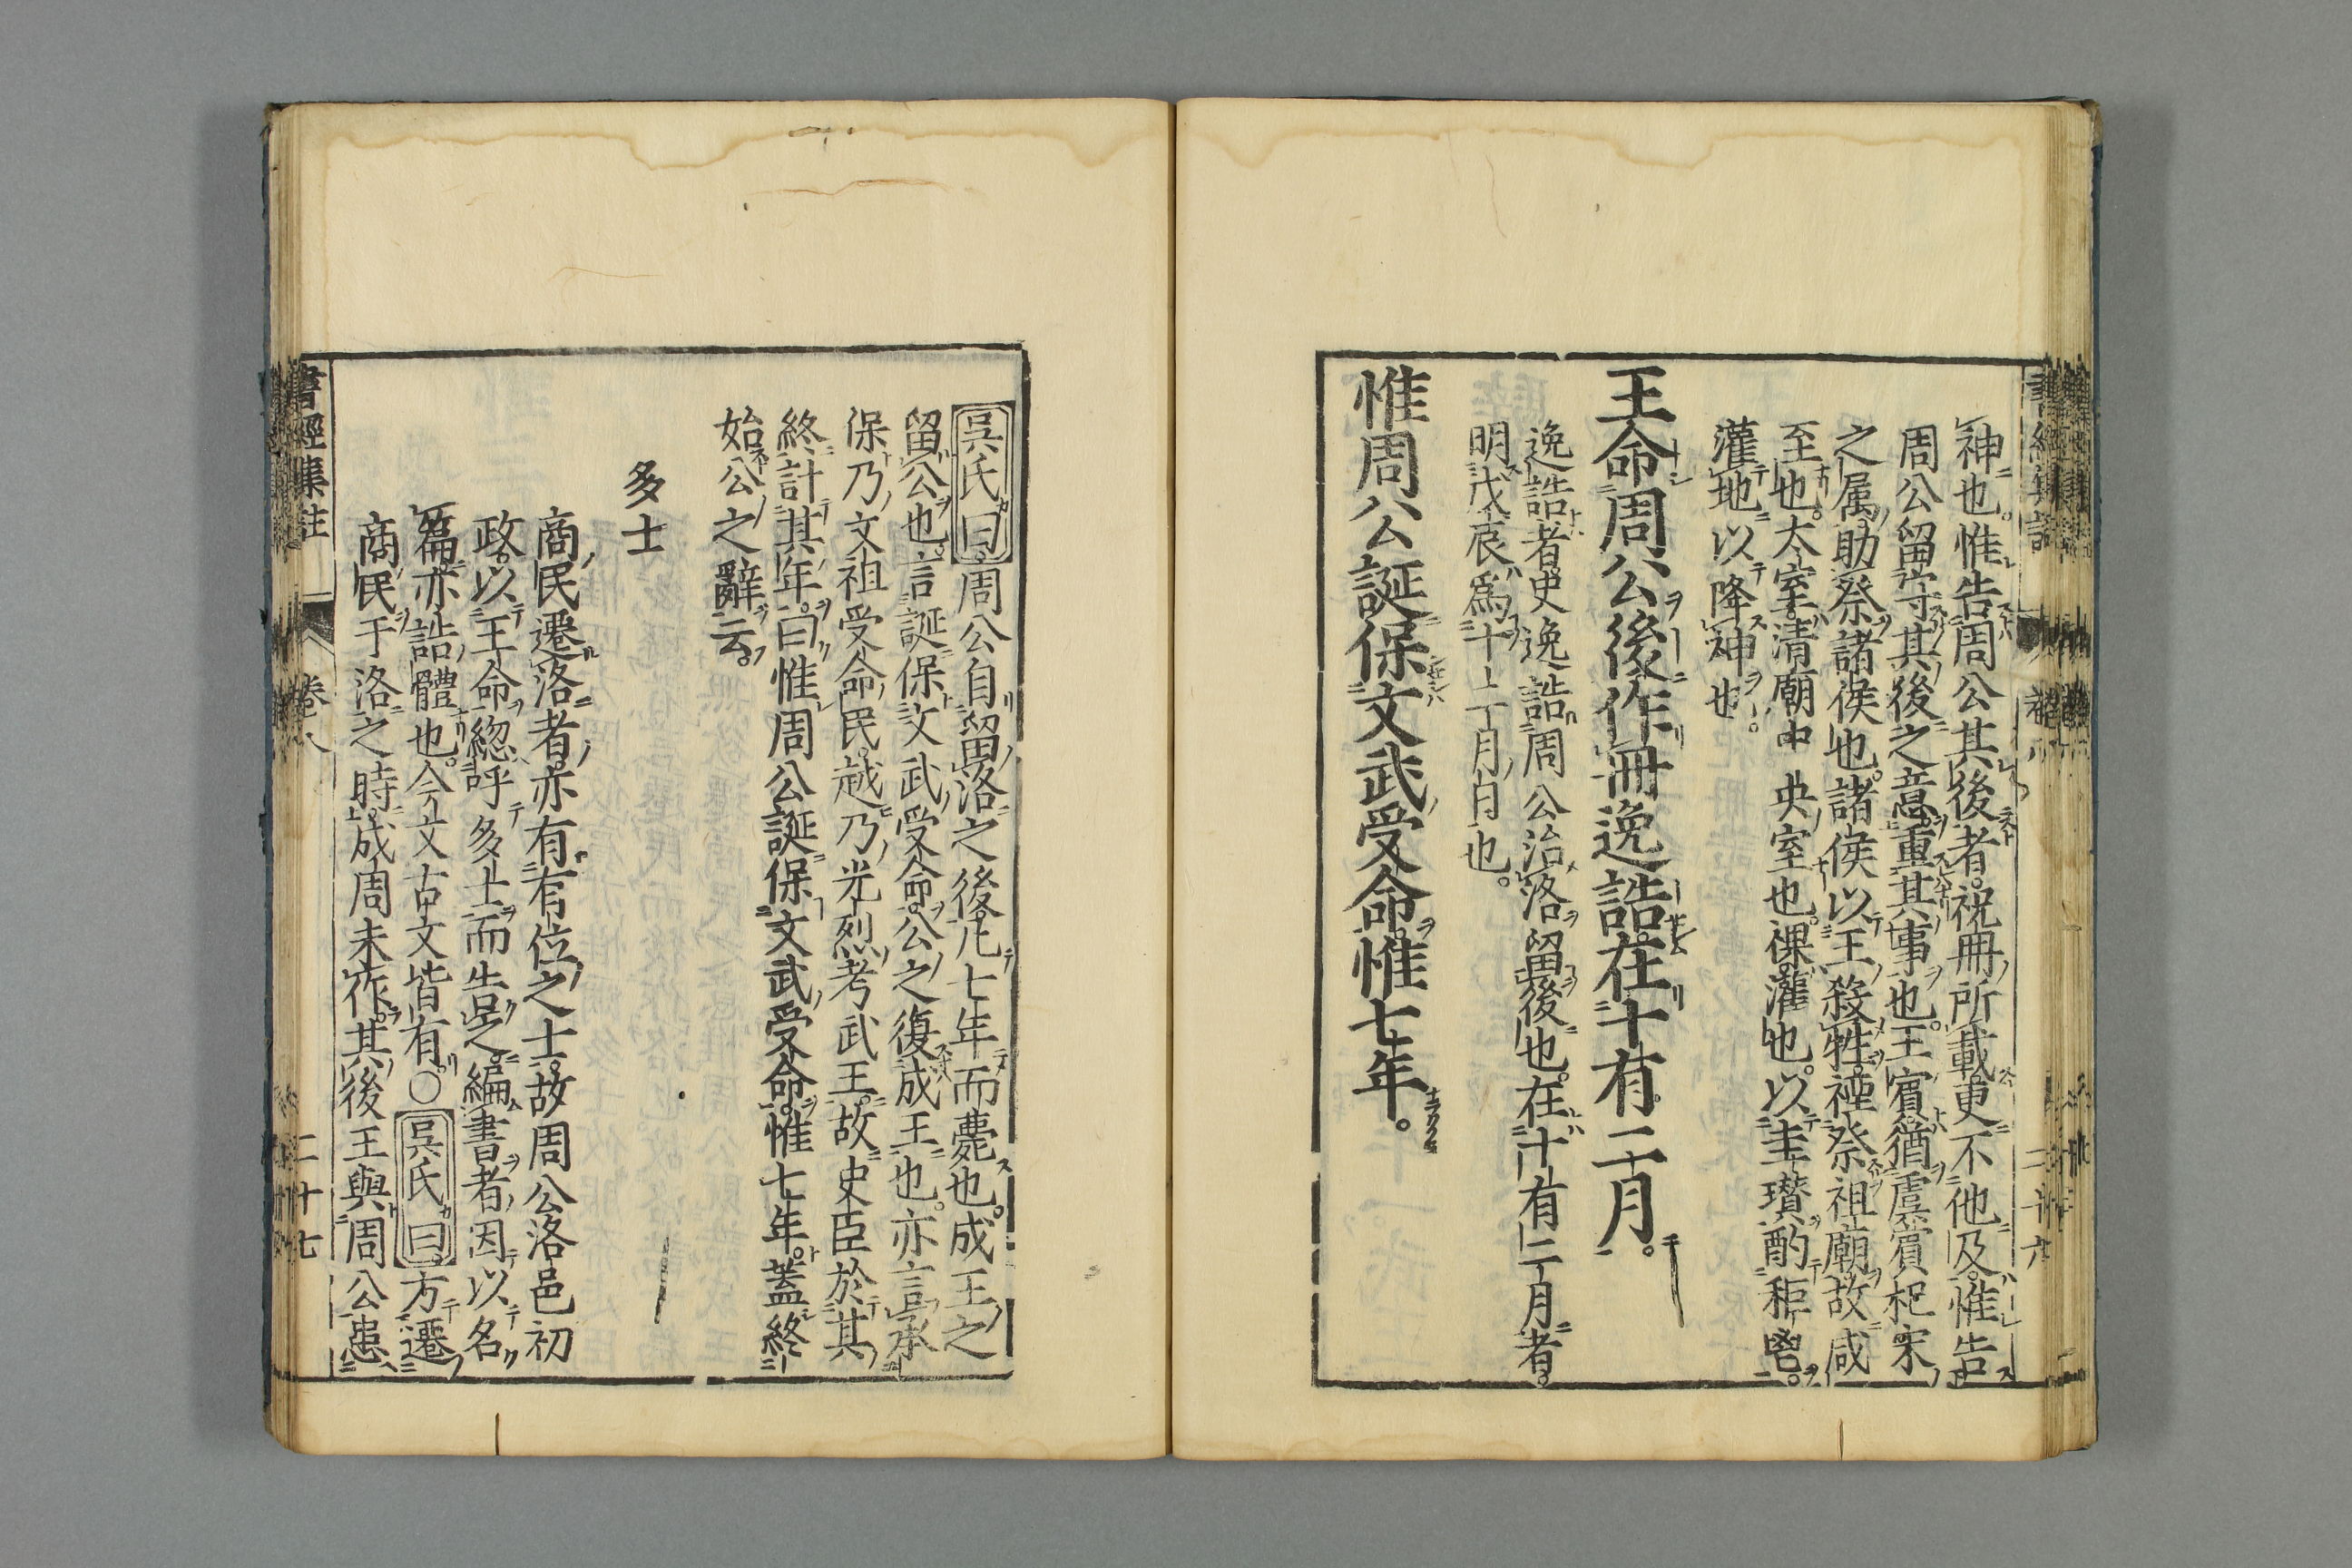 神也。惟告周公其後者。祝冊所載更不他及。惟告
周公留守其後之意。重其事也。王賓猶虞賓杞宋
之属。助祭諸侯也。諸侯以王殺牲禋祭祖廟。故咸
至也。太室。清廟中央室也。祼。灌也。以圭瓚酌秬鬯。
灌地以降神也。
王命周公後。作冊逸誥。在十有二月。
逸誥者。史逸誥周公治洛留後也。在十有二月者。
明戊辰爲十二月日也。
惟周公誕保文武受命。惟七年。
吳氏曰。周公自留洛之後。凡七年而薨也。成王之
留公也。言誕保文武受命。公之復成王也。亦言承
保乃文祖受命民。越乃光烈考武王。故史臣於其
終計其年。曰惟周公誕保文武受命。惟七年。蓋終
始公之辭云。
多士
商民遷洛者。亦有有位之士。故周公洛邑初
政。以王命緫呼多士而告之。編書者因以名
篇。亦誥體也。今文古文皆有。○吳氏曰。方遷
商民于洛之時。成周未作。其後王與周公患
書經集註 卷八 二十七